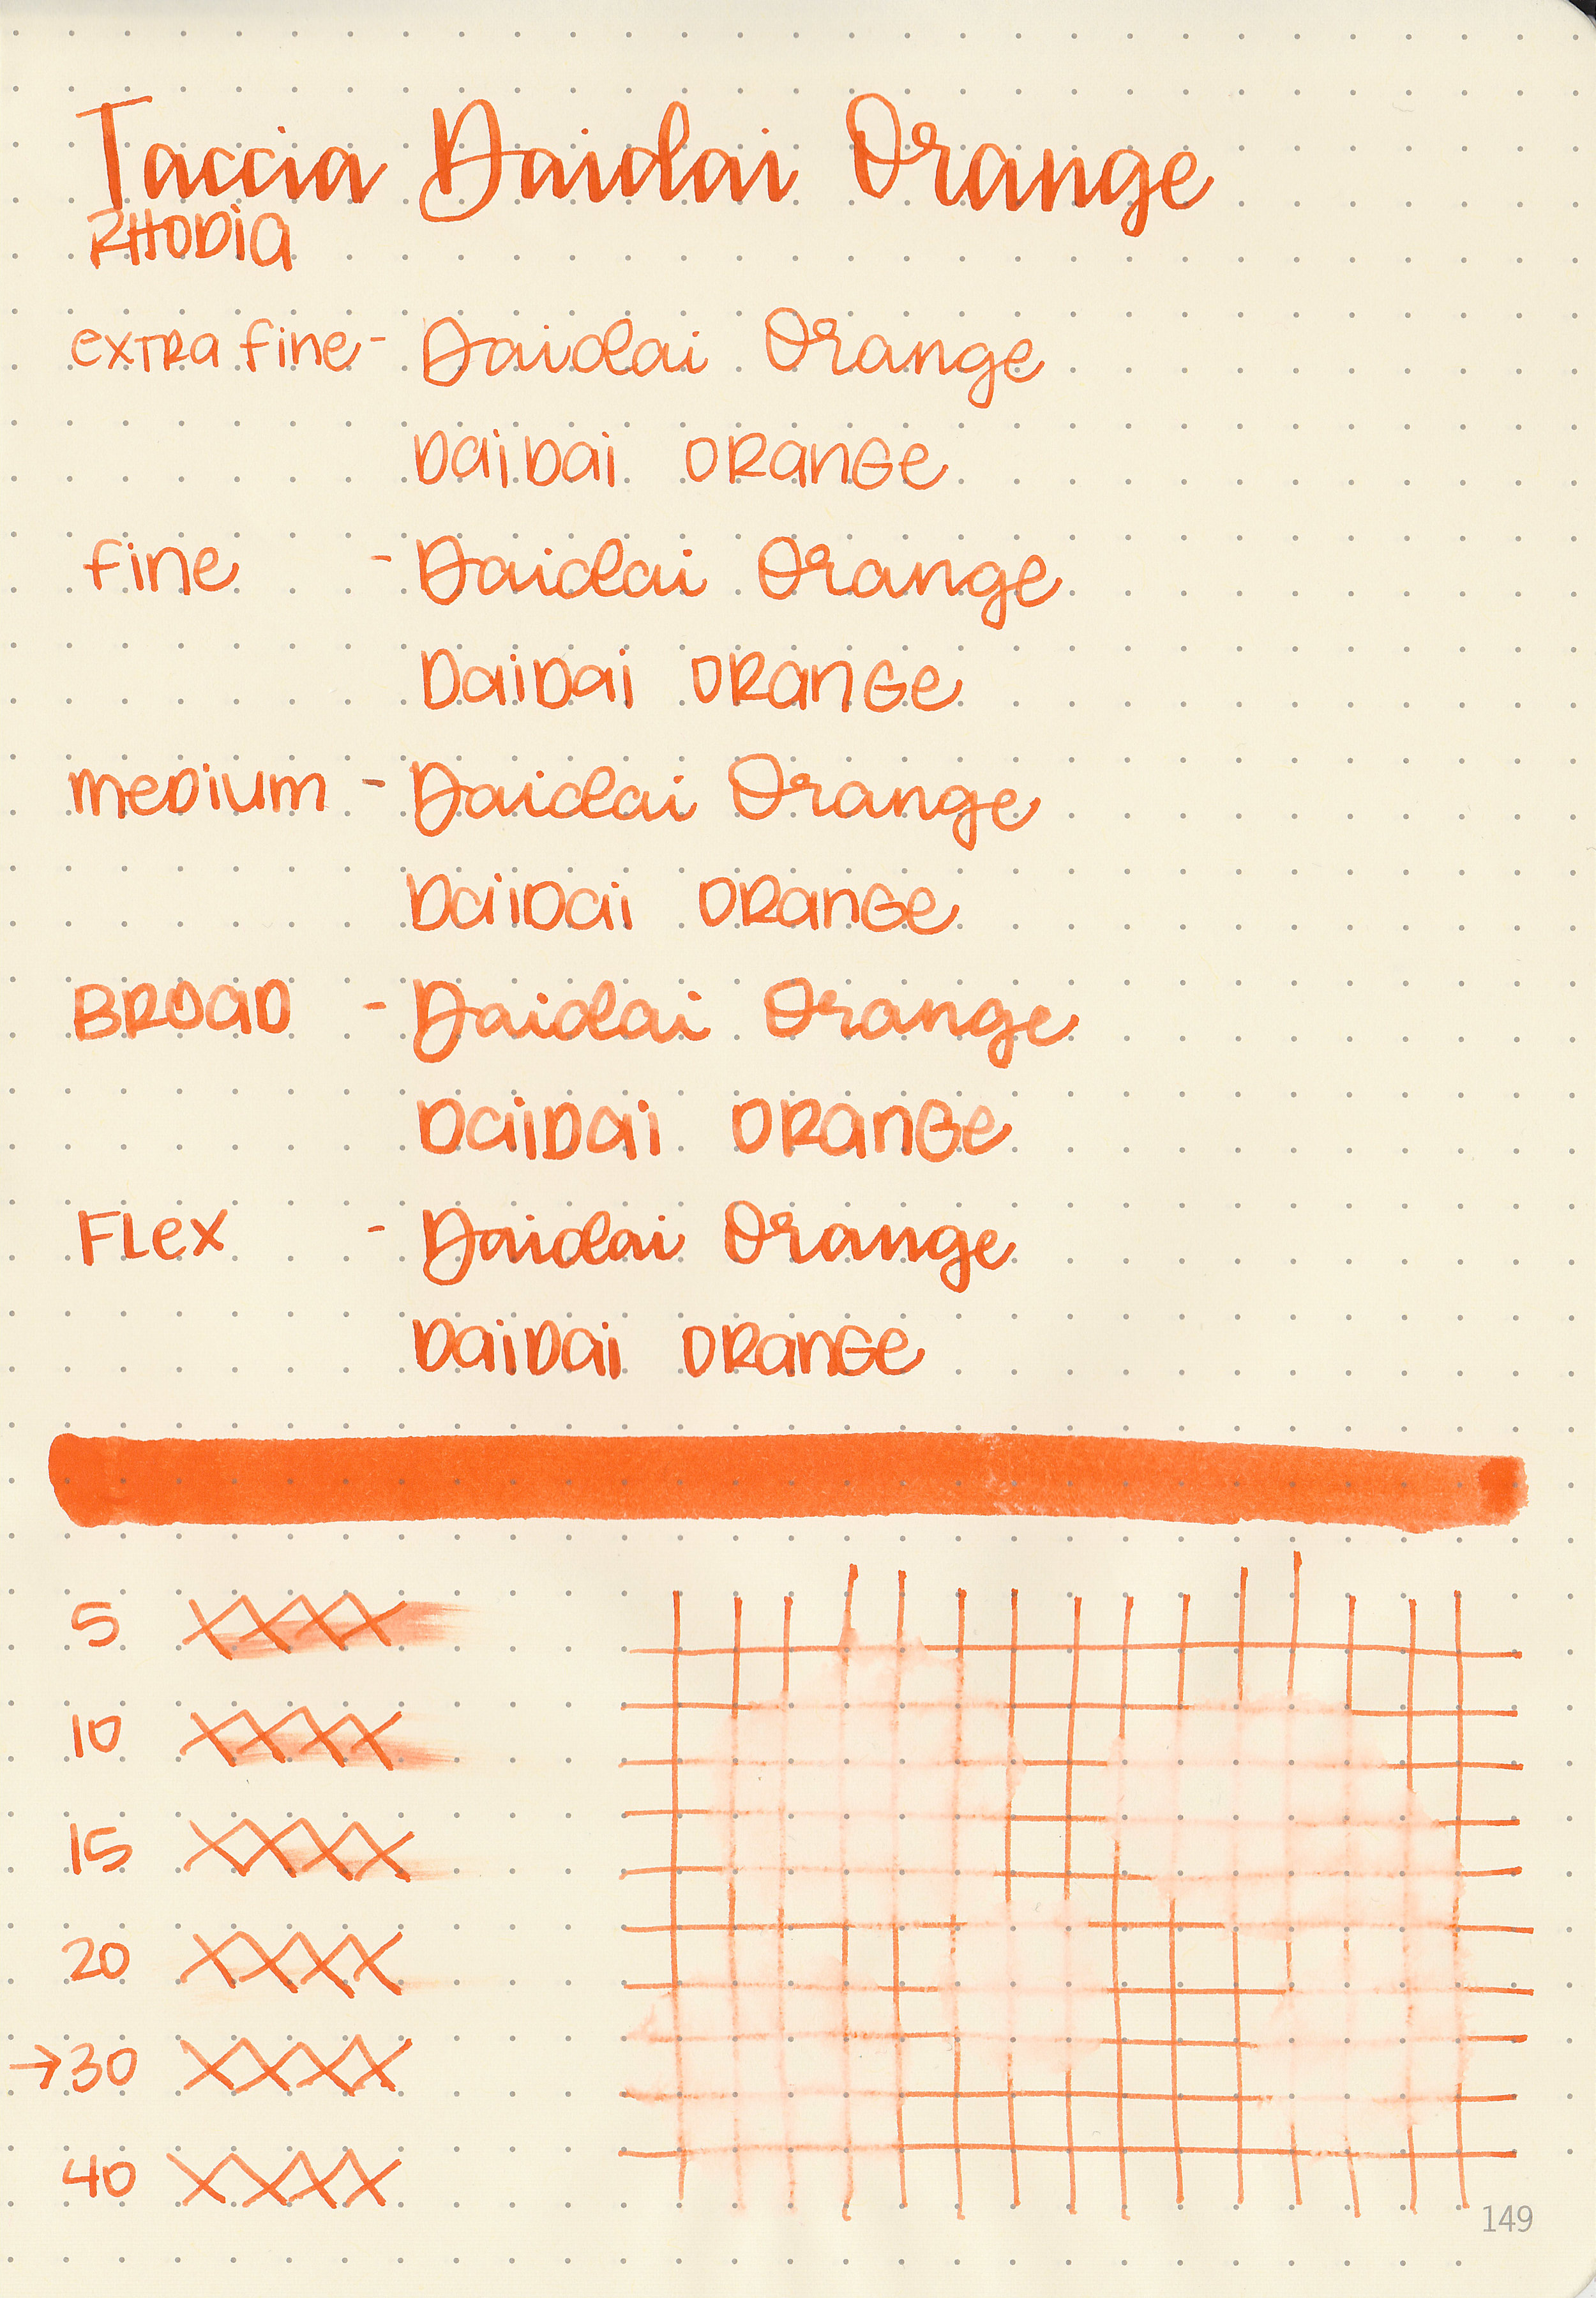 Taccia Daidai Orange
RHODIA
extra fine - Daidai Orange
Daidai Orange
fine - Daidai Orange
Daidai Orange
medium - Daidai Orange
Daidai Orange
Broad - Daidai Orange
Daidai Orange
Flex - Daidai Orange
Daidai Orange
5 XXXX
10 XXXX
15 XXXX
20 XXXX
→30 XXXX
40 XXXX
149